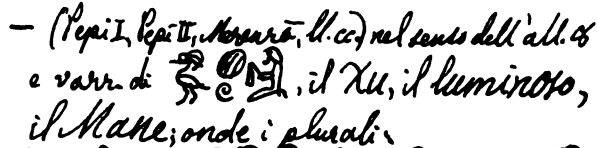 — (Pepi I, Pepi II, Merenrā, ll. cc.) nel senso dell'all. ∞
e varr. di 𓅜𓐍𓀭, il Xu, il luminoso,
il Mane; onde i plurali